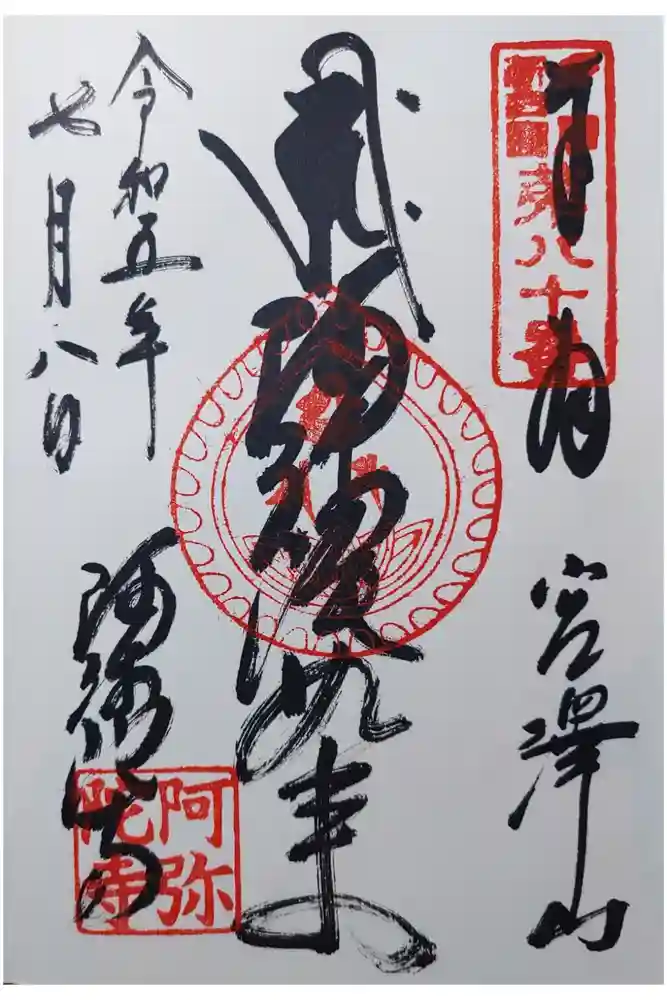 奉拝
宮澤山
第八十番
阿弥陀如来
令和五年
七月八日
阿弥陀寺
阿弥
陀寺